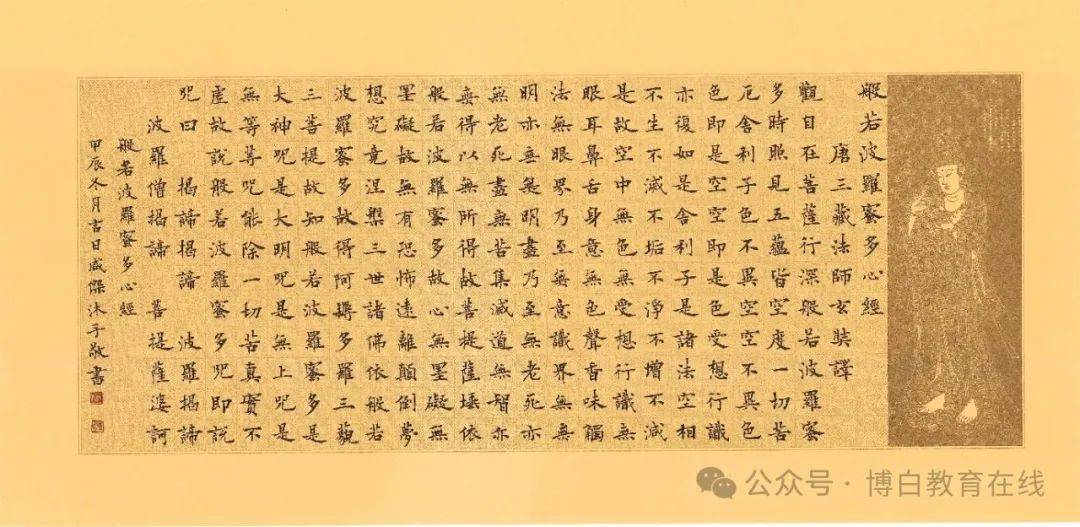 般若波羅蜜多心經
唐三藏法師玄奘譯
觀自在菩薩行深般若波羅蜜
多時照見五蘊皆空度一切苦
厄舍利子色不異空空不異色
色即是空空即是色受想行識
亦復如是舍利子是諸法空相
不生不滅不垢不淨不增不減
是故空中無色無受想行識無
眼耳鼻舌身意無色聲香味觸
法無眼界乃至無意識界無無
明亦無無明盡乃至無老死亦
無老死盡無苦集滅道無智亦
無得以無所得故菩提薩埵依
般若波羅蜜多故心無罣礙無
罣礙故無有恐怖遠離顛倒夢
想究竟涅槃三世諸佛依般若
波羅蜜多故得阿耨多羅三藐
三菩提故知般若波羅蜜多是
大神呪是大明呪是無上呪是
無等等呪能除一切苦真實不
虛故說般若波羅蜜多呪即說
呪曰 揭諦揭諦 波羅揭諦
波羅僧揭諦 菩提薩婆訶
般若波羅蜜多心經
甲辰冬月吉日咸傑沐手敬書
公众号·博白教育在线